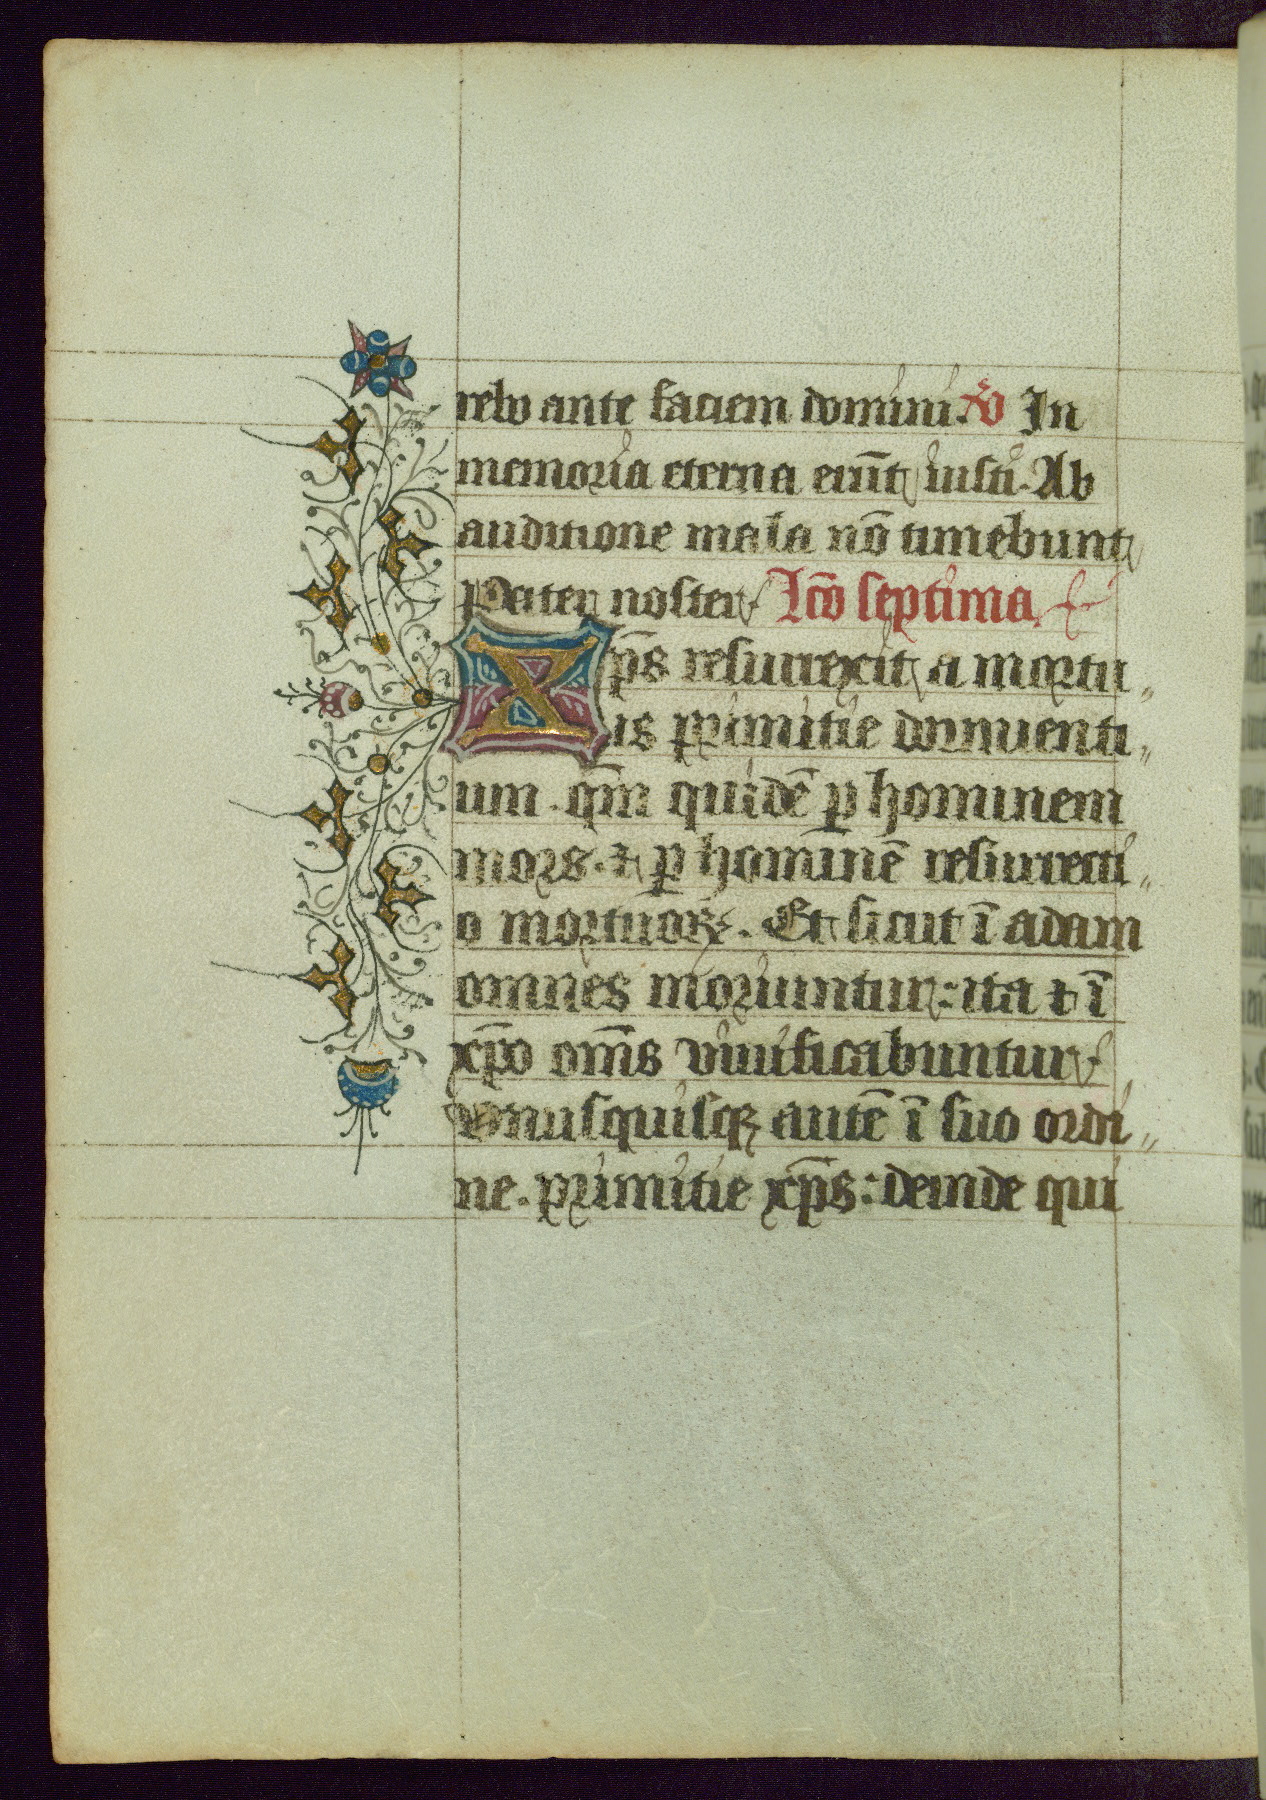 rebo ante faciem domini. V̄ In
memoria eterna erūt iusti. Ab
auditione mala nō timebunt
Pater noster Lc̄o septima
Xp̄s resurrexit a mortu„
is primitie dormienti„
um. qm̄ quidē ꝑ hominem
mors. ⁊ ꝑ hominē resurrecti„
o mortuoꝝ. Et sicut ī adam
omnes moriuntur: ita ⁊ ī
xp̄o om̄s viuificabuntur
Vnusquisqꝫ autē ī suo ordi„
ne. primitie xp̄s: deinde qui